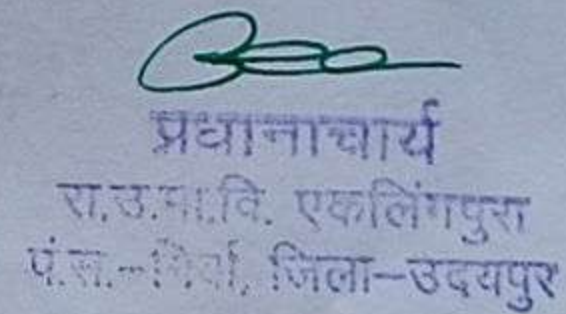 प्रधानाचार्य
रा.उ.मा.वि. एकलिंगपुरा
पं.स.-गिर्वा, जिला-उदयपुर